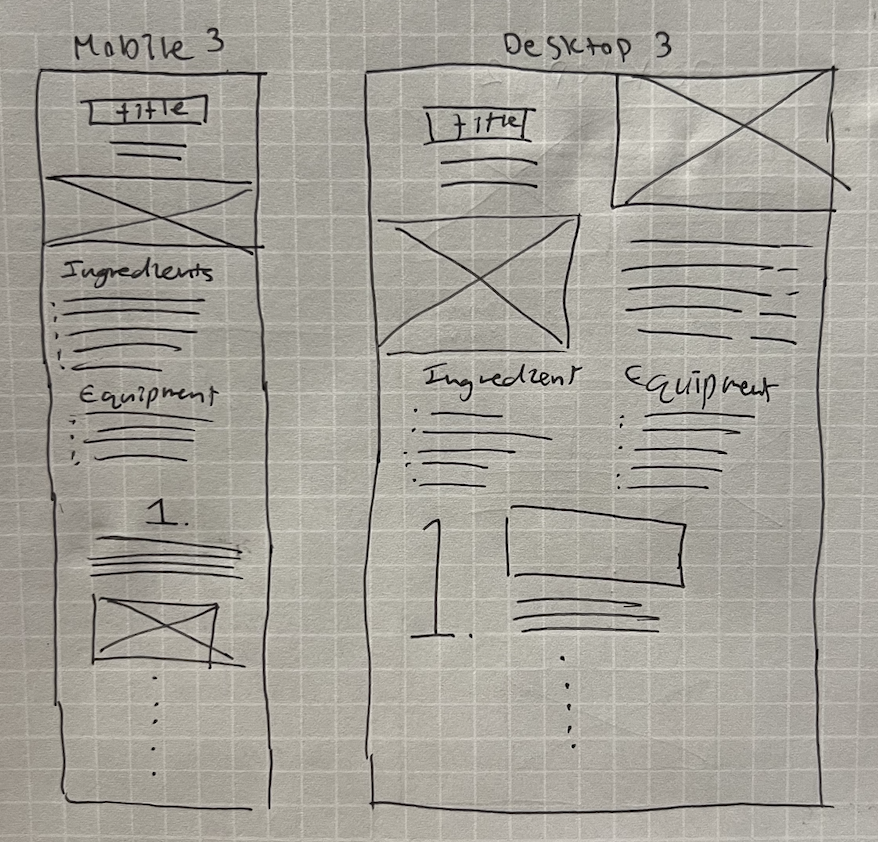 Mobile 3
title
Ingredients
Equipment
1.
Desktop 3
title
Ingredient
Equipment
1.